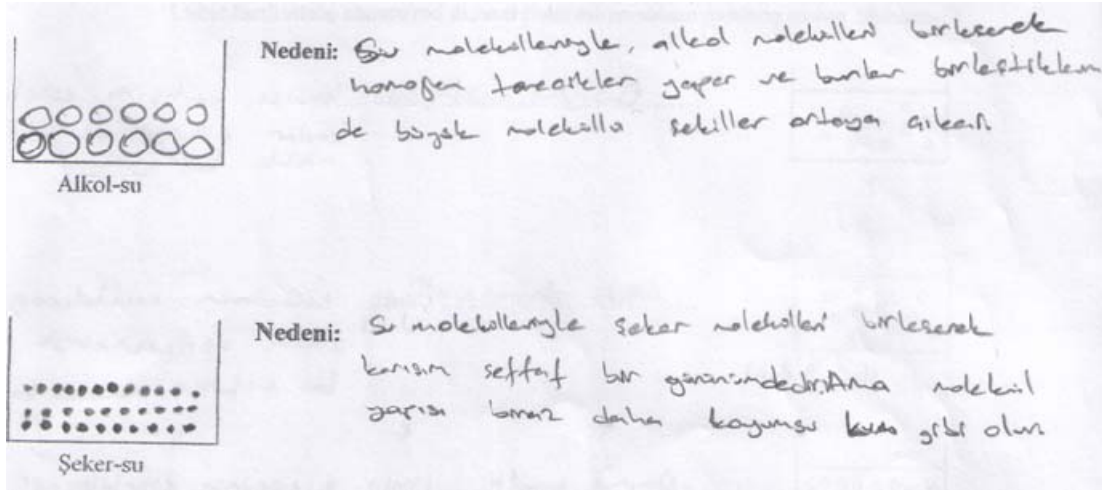 Nedeni: Su molekülleriyle, alkol molekülleri birleşerek
homojen tanecikler yapar ve bunlar birleştikleri
de büyük moleküllü şekiller ortaya çıkar.
Alkol-su
Nedeni: Su molekülleriyle şeker molekülleri birleşerek
karışım şeffaf bir görünümdedir. Ama molekül
yapısı biraz daha koyumsu gibi olur.
Şeker-su